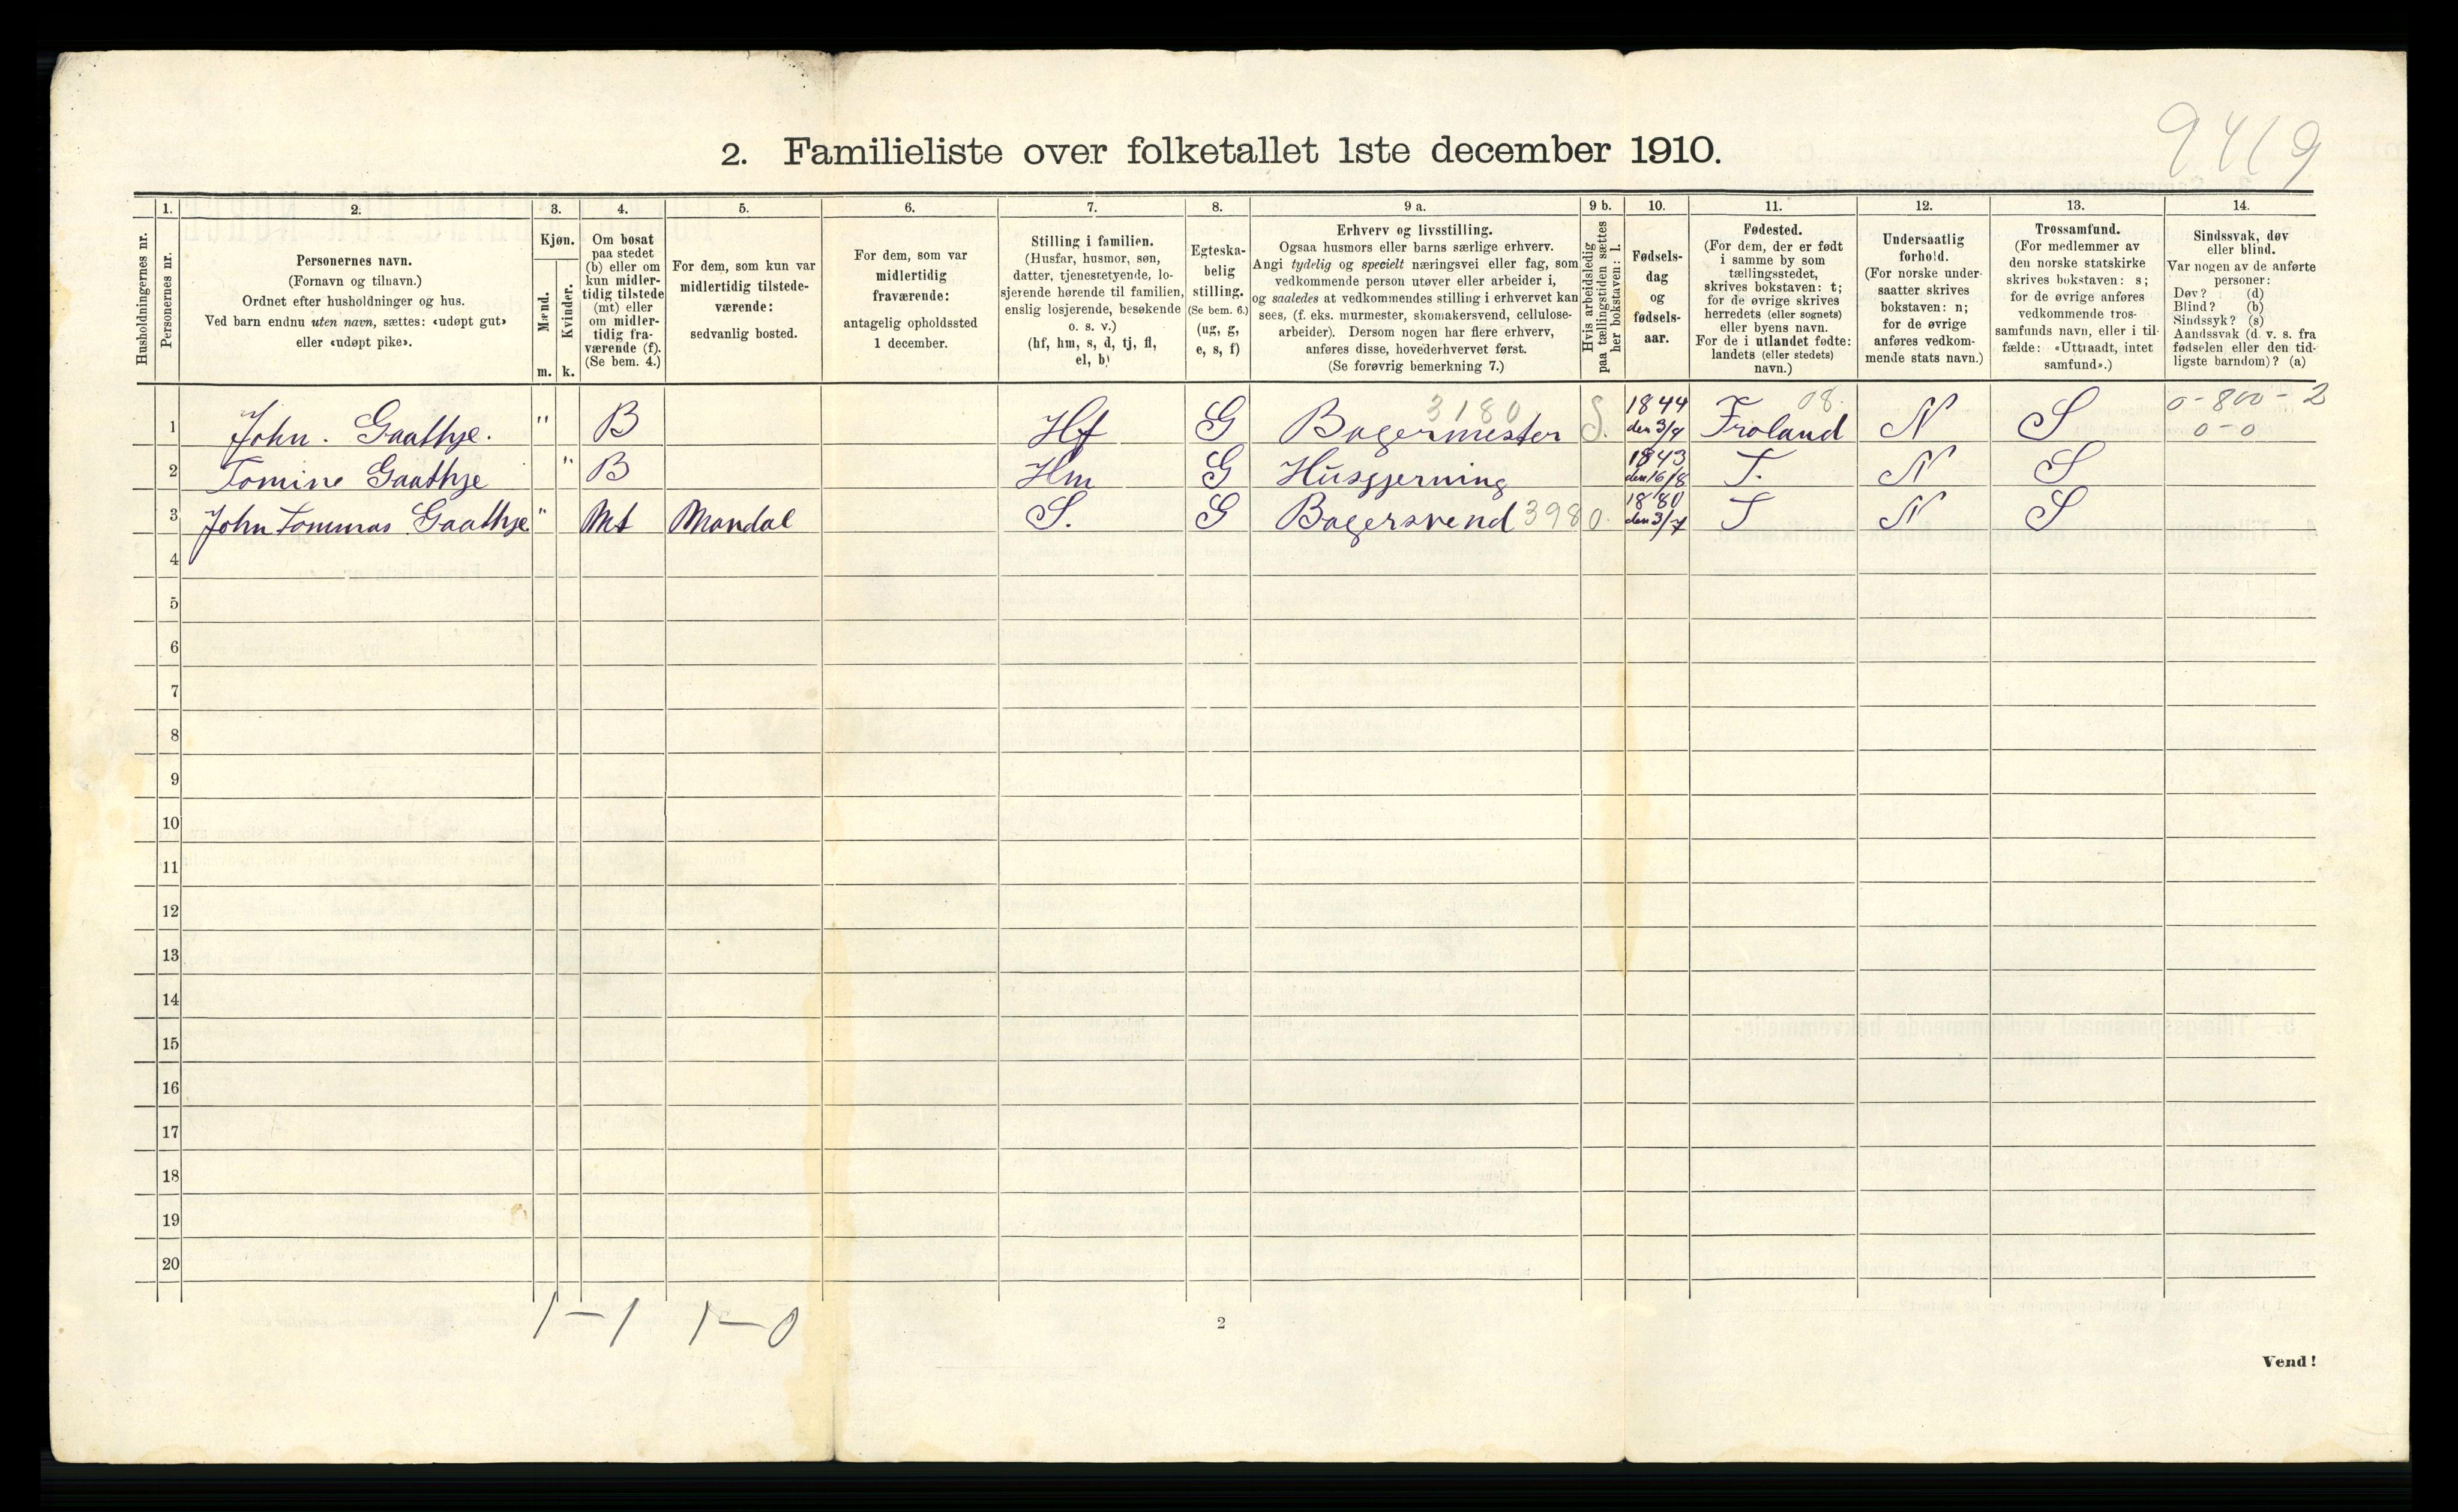 9419
2. Familieliste over folketallet 1ste december 1910.
Husholdningernes nr.
1.
Personernes nr.
2.
Personernes navn.
(Fornavn og tilnavn.)
Ordnet efter husholdninger og hus.
Ved barn endnu uten navn, sættes: «udøpt gut»
eller «udøpt pike».
3.
Kjøn.
Mænd.
Kvinder.
m. k.
4.
Om bosat
paa stedet
(b) eller om
kun midler-
tidig tilstede
(mt) eller
om midler-
tidig fra-
værende (f).
(Se bem. 4.)
5.
For dem, som kun var
midlertidig tilstede-
værende:
sedvanlig bosted.
6.
For dem, som var
midlertidig
fraværende:
antagelig opholdssted
1 december.
7.
Stilling i familien.
(Husfar, husmor, søn,
datter, tjenestetyende, lo-
sjerende hørende til familien,
enslig losjerende, besøkende
o. s. v.)
(hf, hm, s, d, tj, fl,
el, b)
8.
Egteska-
belig
stilling.
(Se bem. 6.)
(ug, g,
e, s, f)
9 a.
Erhverv og livsstilling.
Ogsaa husmors eller barns særlige erhverv.
Angi tydelig og specielt næringsvei eller fag, som
vedkommende person utøver eller arbeider i,
og saaledes at vedkommendes stilling i erhvervet kan
sees, (f. eks. murmester, skomakersvend, cellulose-
arbeider). Dersom nogen har flere erhverv,
anføres disse, hovederhvervet først.
(Se forøvrig bemerkning 7.)
9 b.
Hvis arbeidsledig
paa tællingstiden sættes
her bokstaven: l.
10.
Fødsels-
dag
og
fødsels-
aar.
11.
Fødested.
(For dem, der er født
i samme by som
tællingsstedet,
skrives bokstaven: t;
for de øvrige skrives
herredets (eller sognets)
eller byens navn.
For de i utlandet fødte:
landets (eller stedets)
navn.)
12.
Undersaatlig
forhold.
(For norske under-
saatter skrives
bokstaven: n;
for de øvrige
anføres vedkom-
mende stats navn.)
13.
Trossamfund.
(For medlemmer av
den norske statskirke
skrives bokstaven: s;
for de øvrige anføres
vedkommende tros-
samfunds navn, eller i til-
fælde: «Uttraadt, intet
samfund».)
14.
Sindssvak, døv
eller blind.
Var nogen av de anførte
personer:
Døv? (d)
Blind? (b)
Sindssyk? (s)
Aandssvak (d. v. s. fra
fødselen eller den tid-
ligste barndom)? (a)
3180 1844 08. 0-800-2
1 John. Gaathje. " B Hf G Bagermester S. den 3/4 Froland N S 0-0
1843
2 Tomine Gaathje " B Hm G Husgjerning den 16/8 T. N S
1880
3 John Tommas Gaathje " Mt Mandal S. G Bagersvend 3980. den 3/7 T N S
4
5
6
7
8
9
10
11
12
13
14
15
16
17
18
19
20
1-1 1-0
2
Vend!